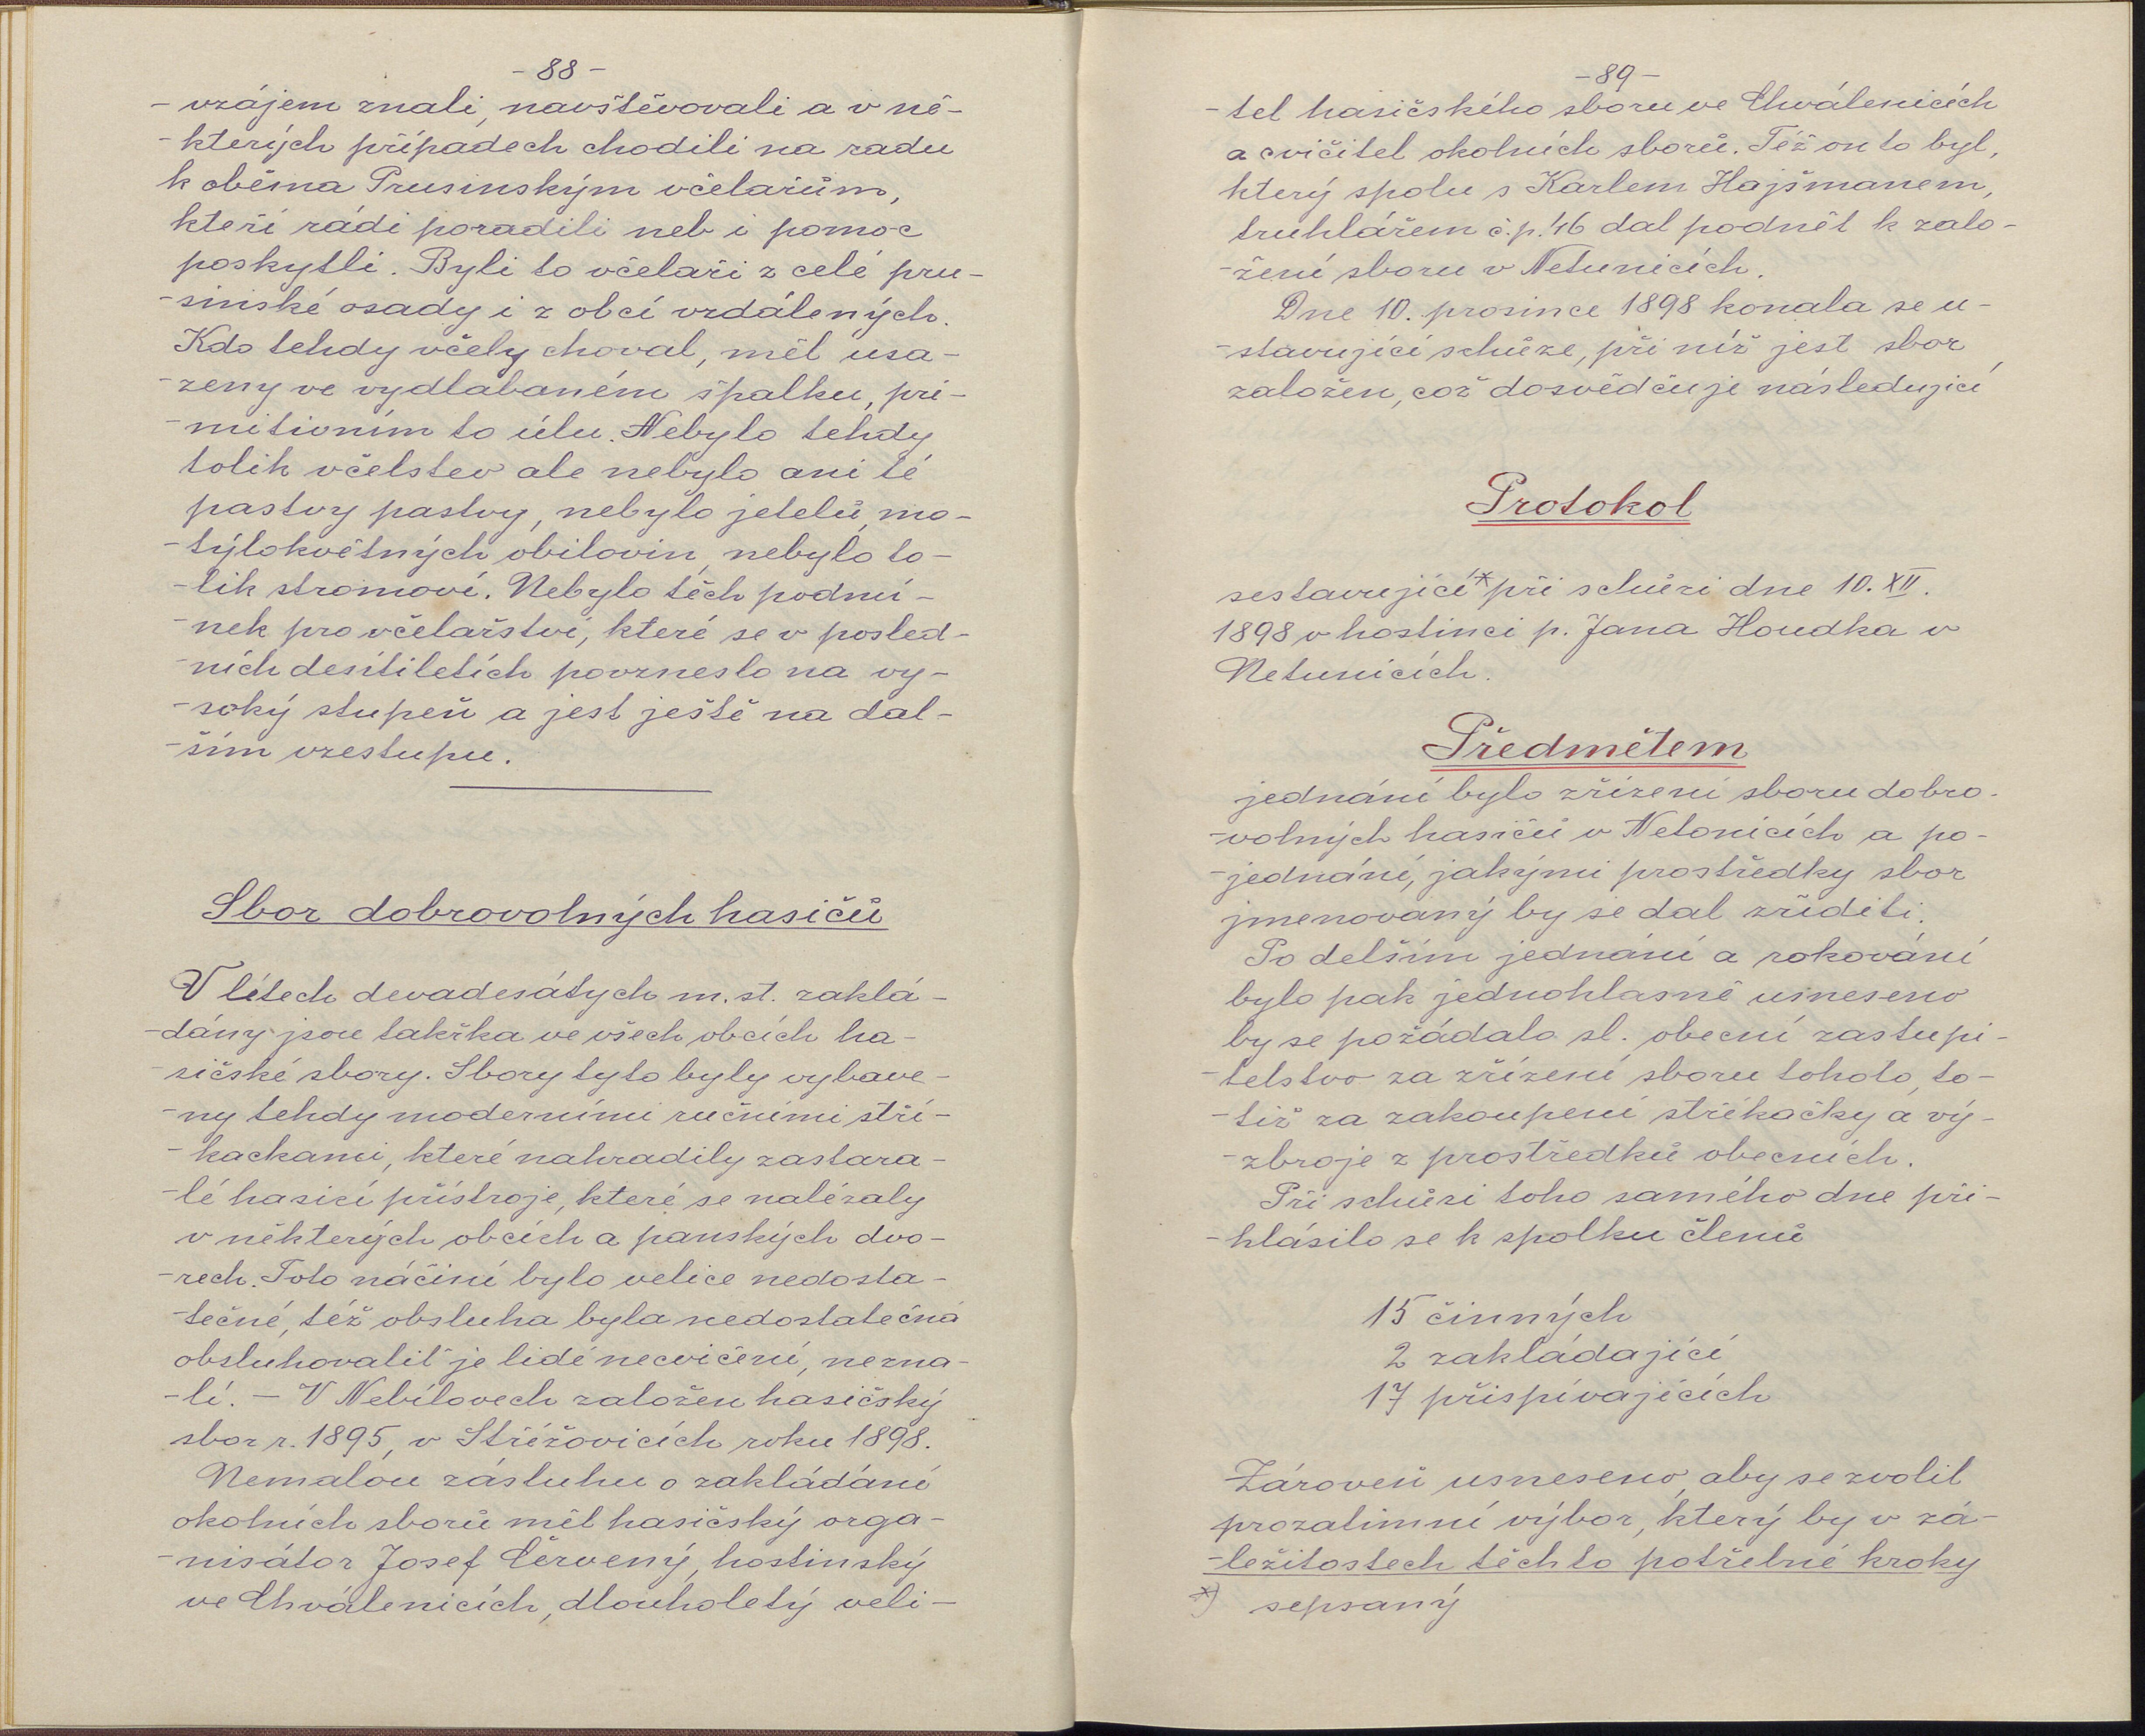 - 88 -
- vzájem znali, navštěvovali a v ně-
- kterých případech chodili na radu
k oběma Prusinským včelařům,
kteří rádi poradili neb i pomoc
poskytli. Byli to včelaři z celé pru-
- sinské osady i z obcí vzdálených.
Kdo tehdy včely choval, měl usa-
- zeny ve vydlabaném špalku, pri-
- mitivním to úlu. Nebylo tehdy
tolik včelstev ale nebylo ani té
pastvy pastvy, nebylo jetelů, mo-
- týlokvětných obilovin, nebylo to-
- lik stromoví. Nebylo těch podmí-
- nek pro včelařství, které se v posled-
- ních desítiletích povzneslo na vy-
- soký stupeň a jest ještě na dal-
- ším vzestupu.
Sbor dobrovolných hasičů
V létech devadesátych m. st. zaklá-
- dány jsou takřka ve všech obcích ha-
- sičské sbory. Sbory tyto byly vybave-
- ny tehdy moderními ručními stří-
- kackami, které nahradily zastara-
- lé hasicí přístroje, které se nalézaly
v některých obcích a panských dvo-
- rech. Toto náčiní bylo velice nedosta-
- tečné, též obsluha byla nedostatečná
obsluhovaliť je lidé necvičení, nezna-
- lí. – V Nebílovech založen hasičský
sbor r. 1895, v Střížovicích roku 1898.
Nemalou zásluhu o zakládání
okolních sborů měl hasičský orga-
- nisátor Josef Červený, hostinský
ve Chválenicích, dlouholetý veli-
- 89 -
- tel hasičského sboru ve Chválenicích
a cvičitel okolních sborů. Též on to byl,
který spolu s Karlem Hajšmanem,
truhlářem č.p. 46 dal podnět k zalo-
- žení sboru v Netunicích.
Dne 10. prosince 1898 konala se u-
- stavující schůze, při níž jest sbor
založen, což dosvědčuje následující
Protokol
sestavující* při schůzi dne 10. XII.
1898 v hostinci p. Jana Houdka v
Netunicích.
Předmětem
jednání bylo zřízení sboru dobro-
- volných hasičů v Netonicích a po-
- jednání, jakými prostředky sbor
jmenovaný by se dal zříditi.
Po delším jednání a rokování
bylo pak jednohlasně usneseno
by se požádalo sl. obecní zastupi-
- telstvo za zřízení sboru tohoto, to-
- tiž za zakoupení stříkačky a vý-
- zbroje z prostředků obecních.
Při schůzi toho samého dne při-
- hlásilo se k spolku členů
15 činných
2 zakládající
17 přispívajících
Zároveň usneseno, aby se zvolil
prozatimní výbor, který by v zá-
- ležitostech těchto potřebné kroky
*) sepsaný